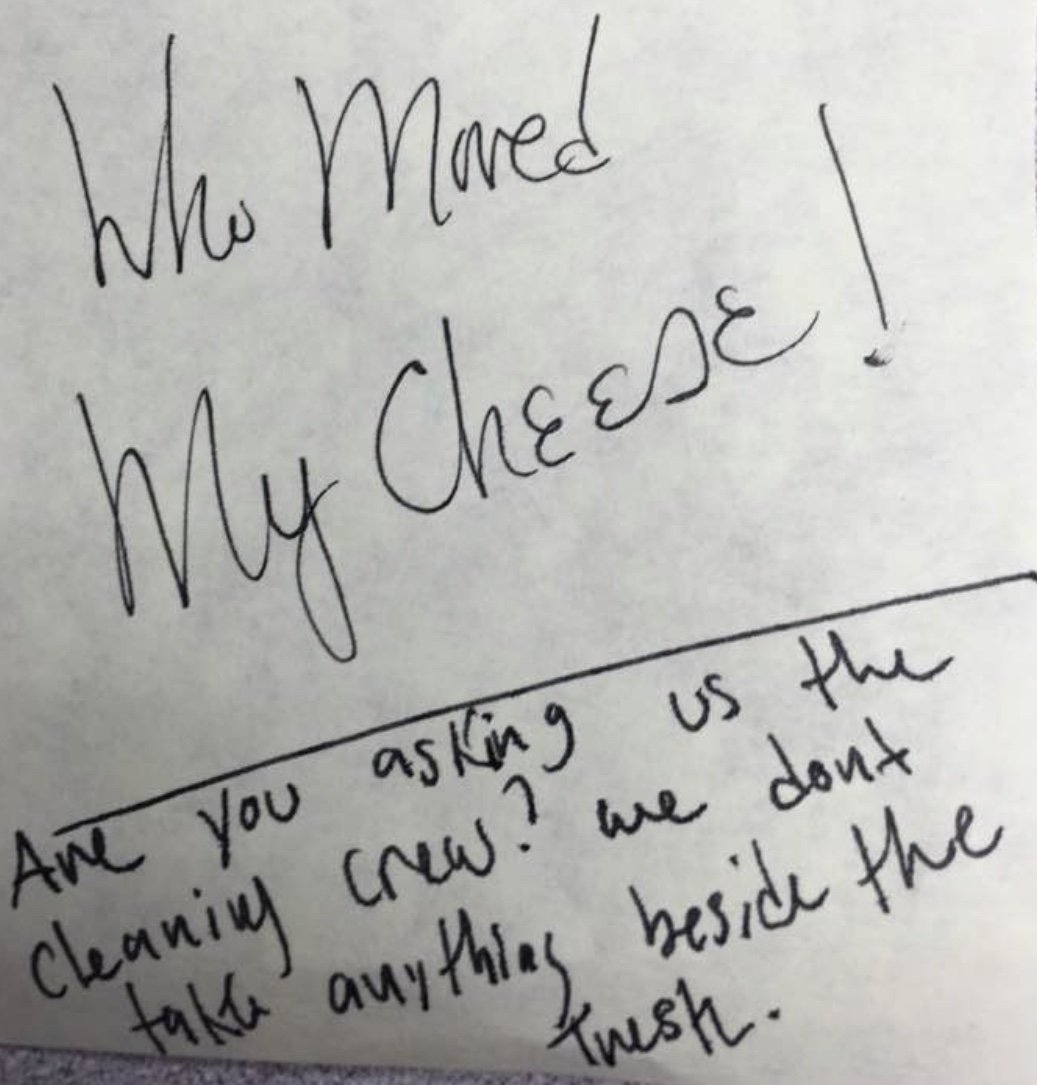 Who Moved
My Cheese!
Are you asking us the
cleaning crew? we dont
take anything beside the
tresh.